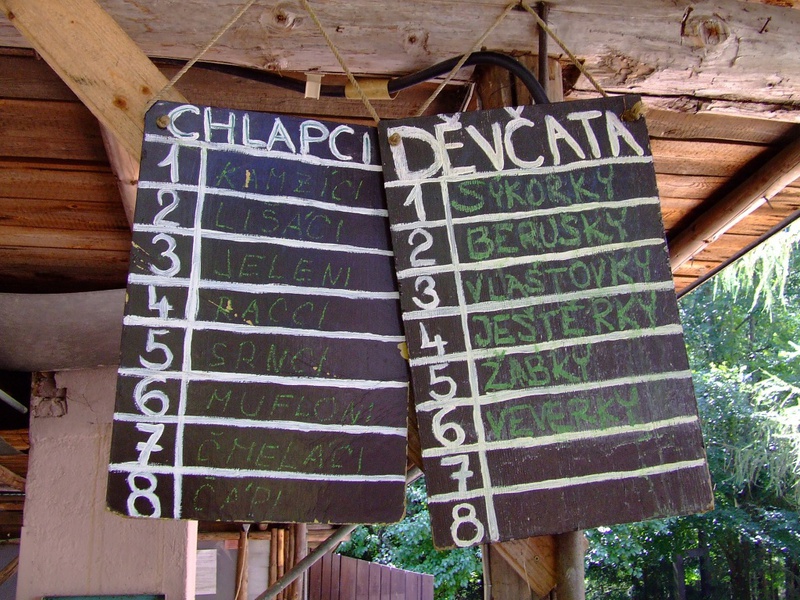 CHLAPCI
1 KAMZÍCI
2 LIŠÁCI
3 JELENI
4 RACCI
5 SRNCI
6 MUFLONI
7 ČMELÁCI
8 ČÁPI
DĚVČATA
1 SÝKORKY
2 BERUŠKY
3 VLAŠTOVKY
4 JEŠTĚRKY
5 ŽABKY
6 VEVERKY
7
8